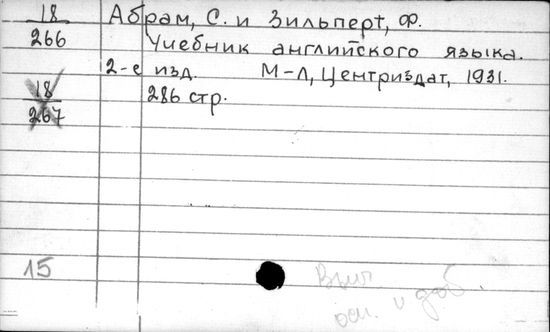 18
266
Абрам, С. и Зильперт, Ф.
Учебник английского языка.
2-е изд. М-Л, Центриздат, 1931.
286 стр.
18
267
15
осн. и доб.